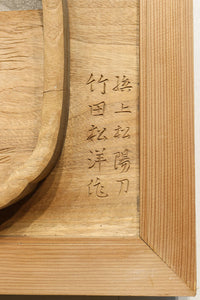 上松陽刀
竹田松洋作